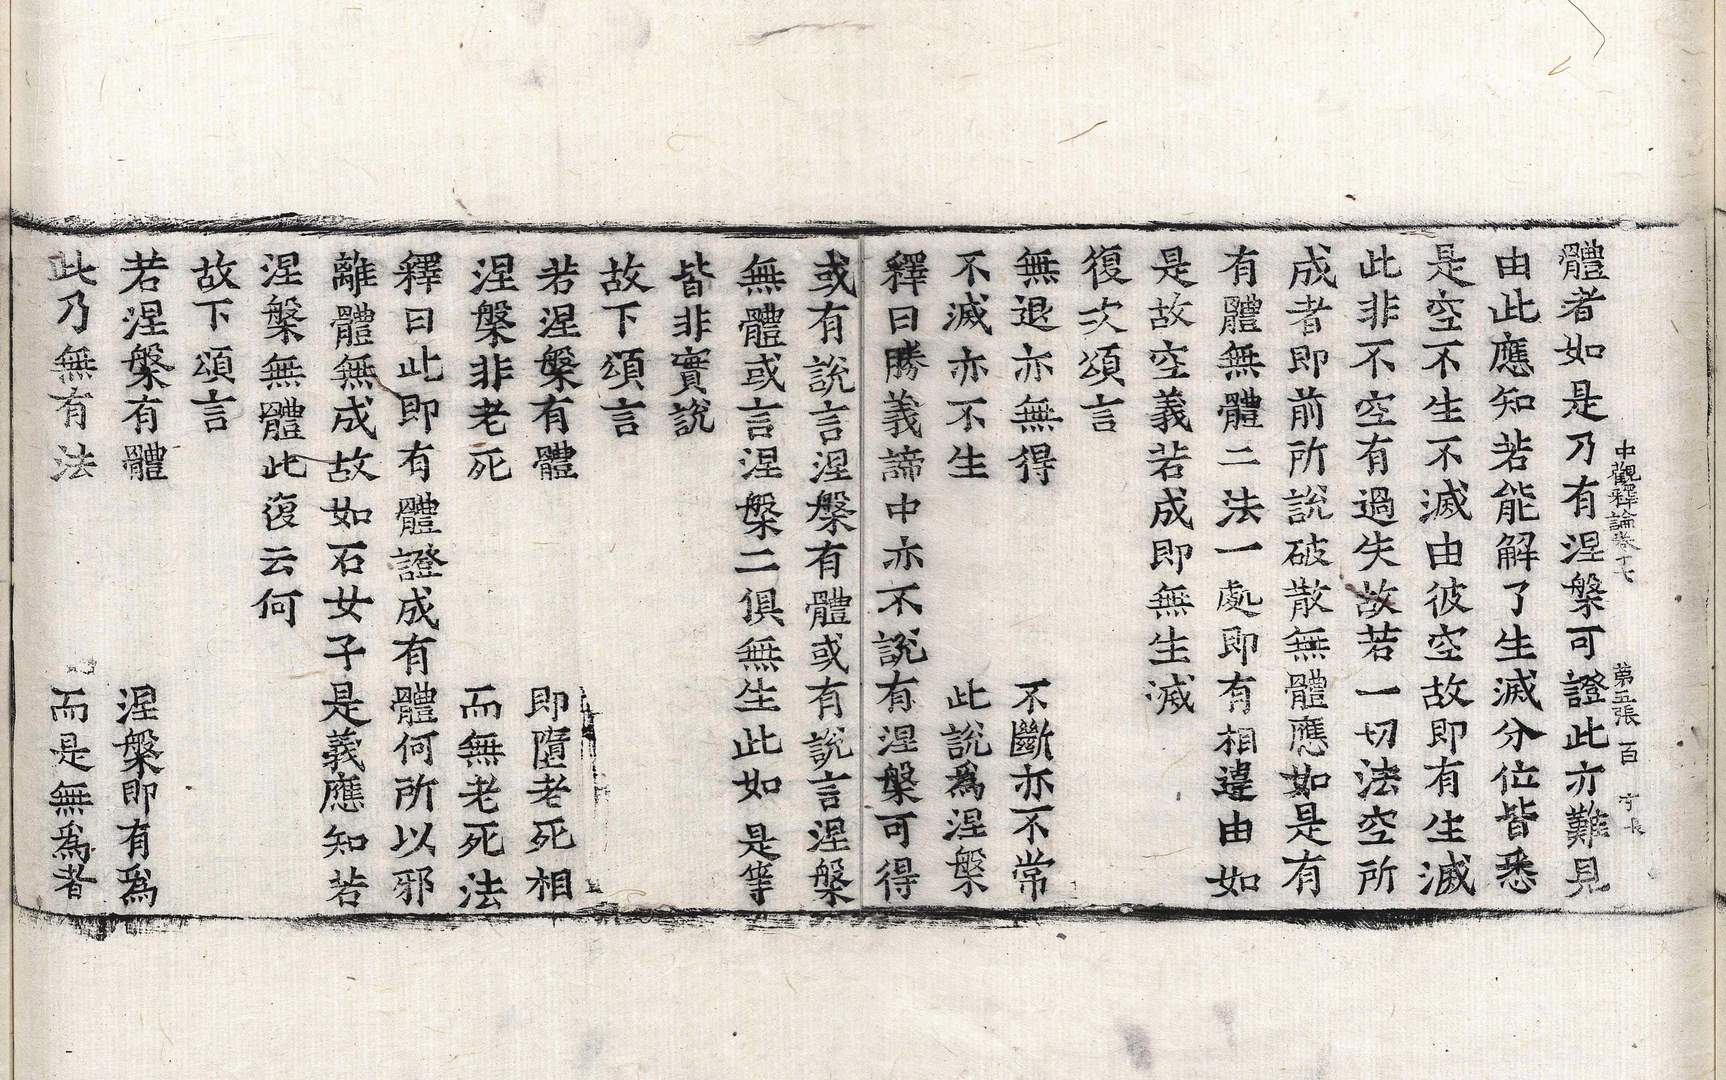 中觀釋論卷十七　第五張　百
體者如是乃有涅槃可證此亦難見
由此應知若能解了生滅分位皆悉
是空不生不滅由彼空故即有生滅
此非不空有過失故若一切法空所
成者即前所說破散無體應如是有
有體無體二法一處即有相違由如
是故空義若成即無生滅
復次頌言
無退亦無得　不斷亦不常
不滅亦不生　此說爲涅槃
釋曰勝義諦中亦不說有涅槃可得
或有說言涅槃有體或有說言涅槃
無體或言涅槃二俱無生此如是等
皆非實說
故下頌言
若涅槃有體　即墮老死相
涅槃非老死　而無老死法
釋曰此即有體證成有體何所以邪
離體無成故如石女子是義應知若
涅槃無體此復云何
故下頌言
若涅槃有體　涅槃即有爲
此乃無有法　而是無爲者